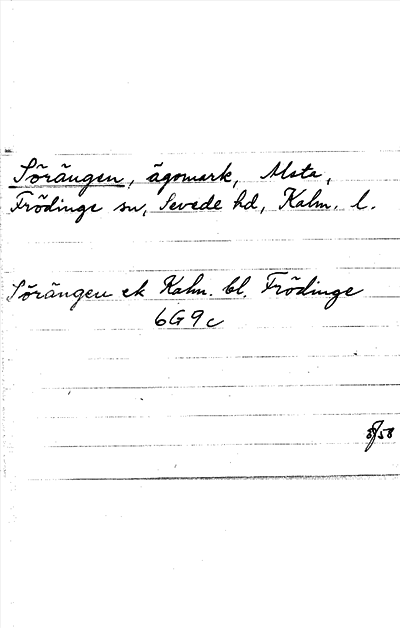 Sörängen, ägomark, Alsta,
Frödinge sn, Sevede hd, Kalm. l.
Sörängen ek Kalm. bl. Frödinge
6G9c